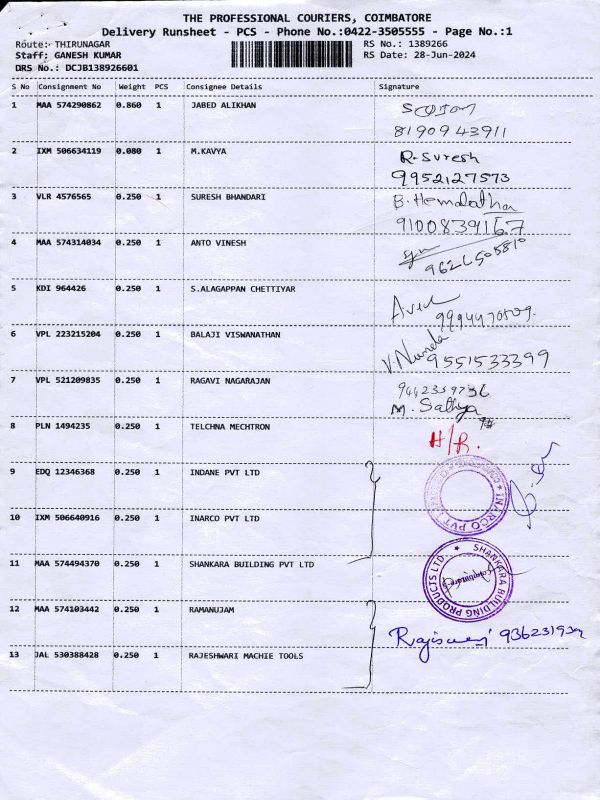 THE PROFESSIONAL COURIERS, COIMBATORE
Delivery Runsheet - PCS - Phone No.:0422-3505555 - Page No.:1
Route: THIRUNAGAR RS No.: 1389266
Staff: GANESH KUMAR RS Date: 28-Jun-2024
DRS No.: DCJB138926601
S No Consignment No Weight PCS Consignee Details Signature
1 MAA 574290862 0.860 1 JABED ALIKHAN
8190943911
2 IXM 506634119 0.080 1 M.KAVYA R. Suresh
9952127573
3 VLR 4576565 0.250 1 SURESH BHANDARI B. Hemalathaa
9100839167
4 MAA 574314034 0.250 1 ANTO VINESH
9626505810
5 KDI 964426 0.250 1 S.ALAGAPPAN CHETTIYAR
6 VPL 223215204 0.250 1 BALAJI VISWANATHAN V. Nanda
9551533399
7 VPL 521209835 0.250 1 RAGAVI NAGARAJAN
M. Sathya
8 PLN 1494235 0.250 1 TELCHNA MECHTRON H/R.
9 EDQ 12346368 0.250 1 INDANE PVT LTD
10 IXM 506640916 0.250 1 INARCO PVT LTD INARCO PVT
11 MAA 574494370 0.250 1 SHANKARA BUILDING PVT LTD SHANKARA BUILDING PRODUCTS LTD
12 MAA 574103442 0.250 1 RAMANUJAM
13 JAL 530388428 0.250 1 RAJESHWARI MACHIE TOOLS